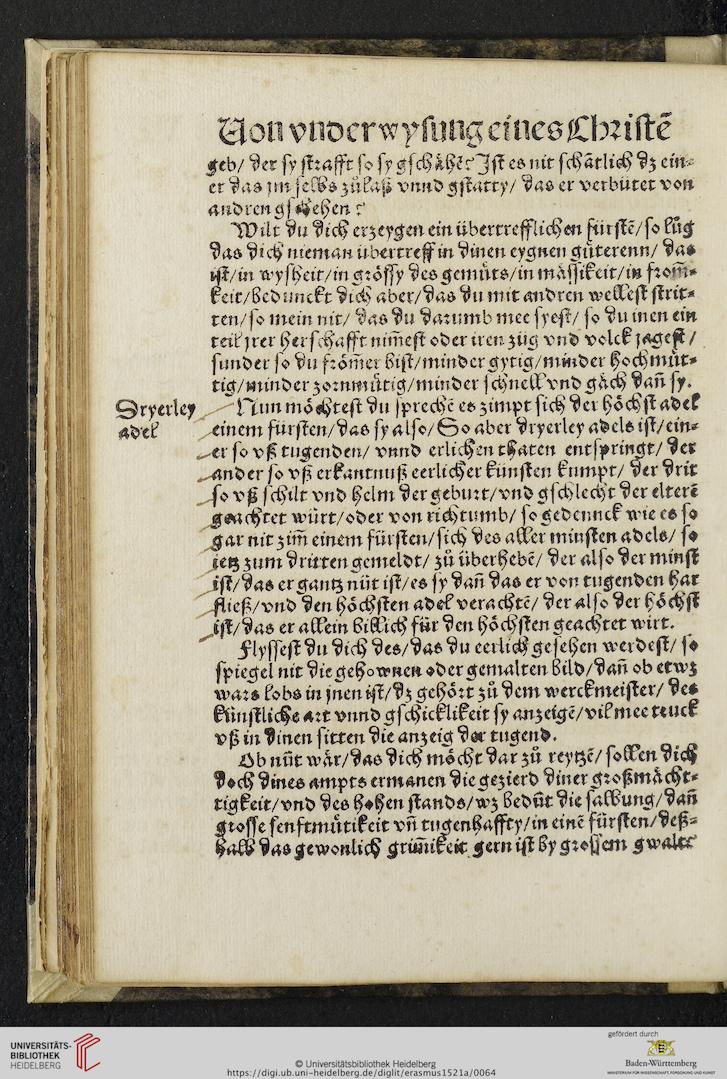 Von vnderwysung eines Christē
geb/ der sy strafft so sy gschähē? Jst es nit schātlich dz ein-
er das jm selbs zůlaß vnnd gstatty/ das er verbütet von
andren gschehen?
Wilt du dich erzeygen ein übertrefflichen fürstē/ so lůg
das dich nieman übertreff in dinen eygnen güterenn/ das
ist/ in wyßheit/ in grössy des gemüts/ in mässikeit/ in from̄-
keit/ bedunckt dich aber/ das du mit andren wellest strit-
ten/ so mein nit/ das du darumb mee syest/ so du inen ein
teil jrer herschafft nim̄est oder iren züg vnd volck jagest/
sunder so du frōmer bist/ minder gytig/ minder hochmüt-
tig/ minder zornmütig/ minder schnell vnd gäch dañ sy.
Dryerley
adel
Nun möchtest du sprechē es zimpt sich der höchst adel
einem fürsten/ das sy also/ So aber dryerley adels ist/ ein-
er so vß tugenden/ vnnd erlichen thaten entspringt/ der
ander so vß erkantnuß eerlicher künsten kumpt/ der drit
so vß schilt vnd helm der geburt/ vnd gschlecht der elterē
geachtet würt/ oder von richtumb/ so gedennck wie es so
gar nit zim̄ einem fürsten/ sich des aller minsten adels/ so
ietz zum dritten gemeldt/ zů überhebē/ der also der minst
ist/ das er gantz nüt ist/ es sy dañ das er von tugenden har
fließ/ vnd den höchsten adel verachtē/ der also der höchst
ist/ das er allein billich für den höchsten geachtet wirt.
Flyssest du dich des/ das du eerlich gesehen werdest/ so
spiegel nit die gehownen oder gemalten bild/ dañ ob etwz
wars lobs in jnen ist/ dz gehört zů dem werckmeister/ des
künstliche art vnnd gschicklikeit sy anzeigē/ vil mee truck
vß in dinen sitten die anzeig der tugend.
Ob nüt wär/ das dich möcht dar zů reytzē/ sollen dich
doch dines ampts ermanen die gezierd diner großmächt-
tigkeit/ vnd des hohen stands/ wz bedüt die salbung/ dañ
grosse senfftmütikeit vñ tugenhaffty/ in einē fürsten/ deß-
halb das gewonlich grim̄ikeit gern ist by grossem gwalt
UNIVERSITÄTS-
BIBLIOTHEK
HEIDELBERG
© Universitätsbibliothek Heidelberg
https://digi.ub.uni-heidelberg.de/diglit/erasmus1521a/0064
gefördert durch
Baden-Württemberg
MINISTERIUM FÜR WISSENSCHAFT, FORSCHUNG UND KUNST